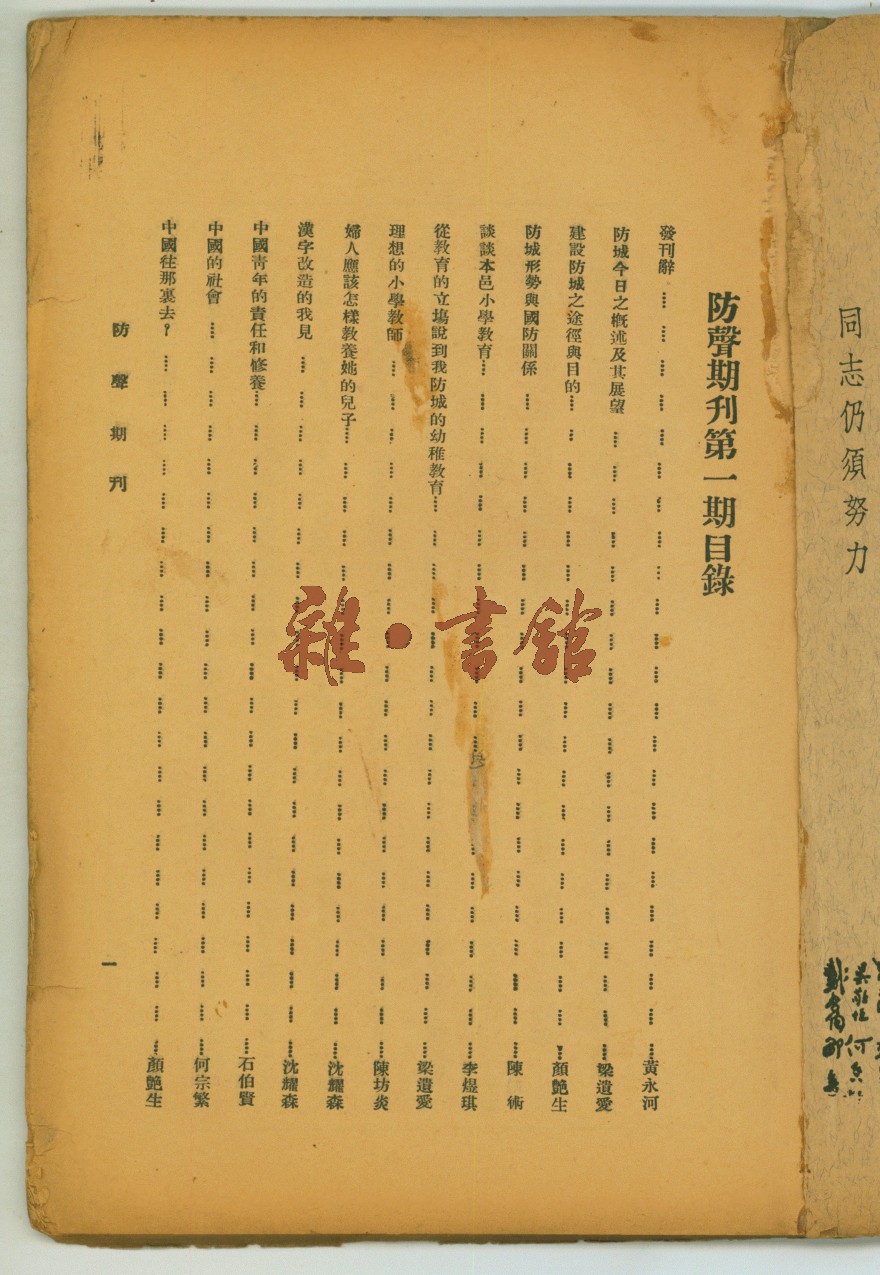 同志仍須努力
防聲期刊第一期目錄
發刊辭 黃永河
防城今日之概述及其展望 梁遺愛
建設防城之途徑與目的 顏艷生
防城形勢與國防關係 陳術
談談本邑小學教育 李煜琪
從教育的立場說到我防城的幼稚教育 梁遺愛
理想的小學教師 陳坊炎
婦人應該怎樣教養她的兒子 沈耀森
漢字改造的我見 沈耀森
中國靑年的責任和修養 石伯賢
中國的社會 何宗繁
中國往那裏去？ 顏艷生
防聲期刊
一
雜·書館